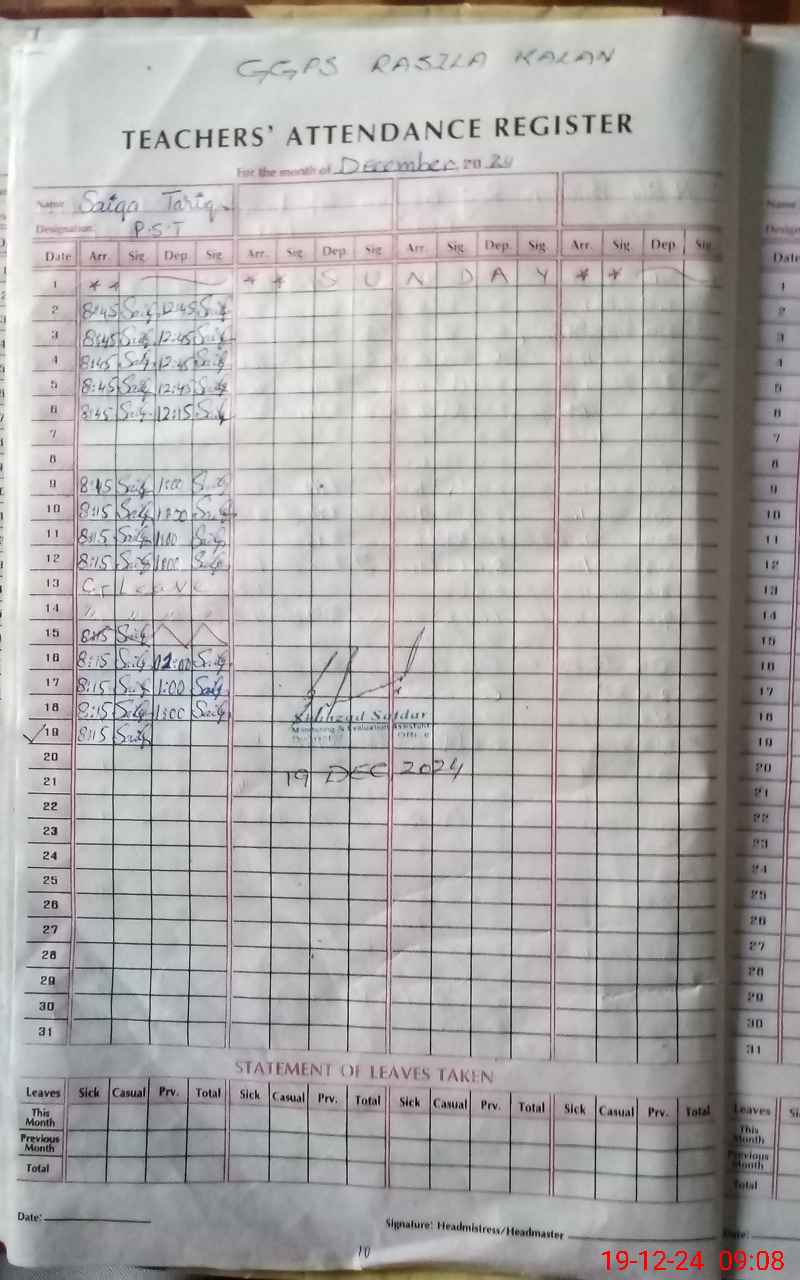 GGPS RASILA KALAN
TEACHERS' ATTENDANCE REGISTER
For the month of December 2024
Name Saiqa Tariq
Designation P.S.T
Date Arr. Sig. Dep. Sig. Arr. Sig. Dep. Sig. Arr. Sig. Dep. Sig. Arr. Sig. Dep. Sig.
1 * * * * S U N D A Y * *
2 8:45 Saiq 12:45 Saiq
3 8:45 Saiq 12:45 Saiq
4 8:45 Saiq 12:45 Saiq
5 8:45 Saiq 12:45 Saiq
6 8:45 Saiq 12:15 Saiq
7
8
9 8:45 Saiq 1:00 Saiq
10 8:15 Saiq 1:00 Saiq
11 8:15 Saiq 1:00 Saiq
12 8:15 Saiq 1:00 Saiq
13 C Leave
14 " " " "
15 8:15 Saiq
16 8:15 Saiq 12:00 Saiq
17 8:15 Saiq 1:00 Saiq
18 8:15 Saiq 1:00 Saiq
Safdar
Monitoring & Evaluation Assistant
19 8:15 Saiq
District Office
20
19 DEC 2024
21
22
23
24
25
26
27
28
29
30
31
STATEMENT OF LEAVES TAKEN
Leaves Sick Casual Prv. Total Sick Casual Prv. Total Sick Casual Prv. Total Sick Casual Prv. Total
This Month
Previous Month
Total
Date:
Signature: Headmistress/Headmaster
10
19-12-24 09:08